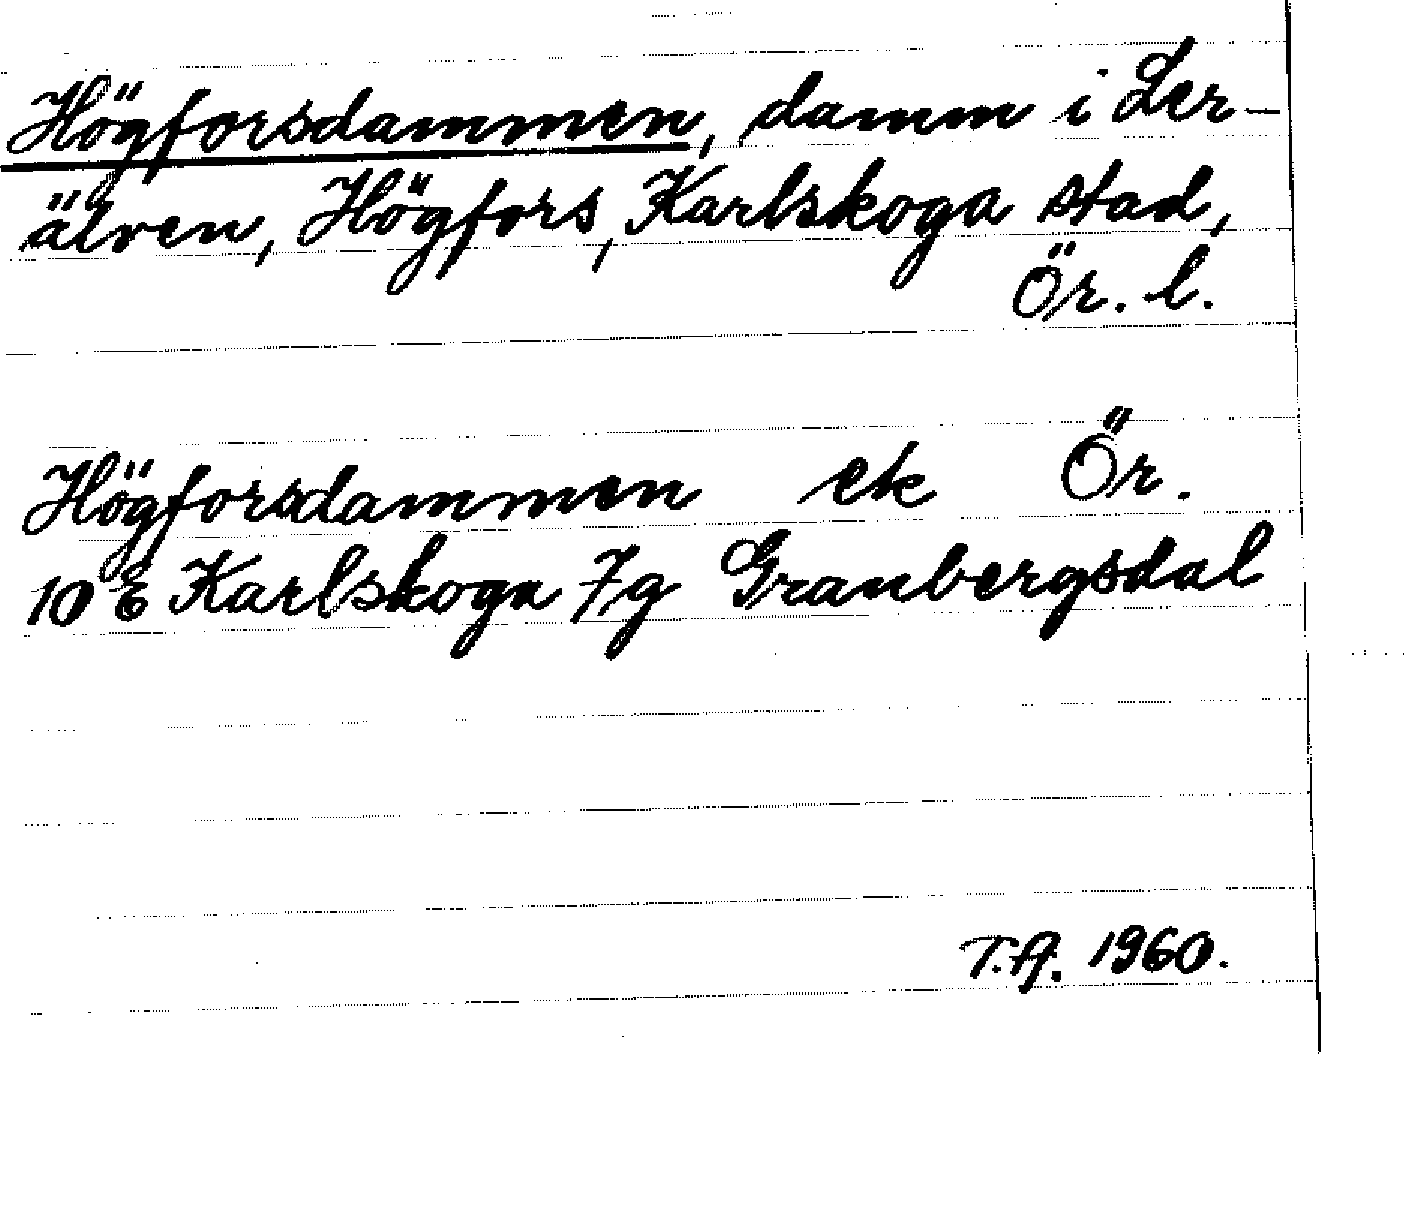 Högforsdammen, damm i Ler-
älven, Högfors, Karlskoga stad,
Ör. l.
Högforsdammen ek Ör.
10 E Karlskoga 7g Granbergsdal
T.A. 1960.